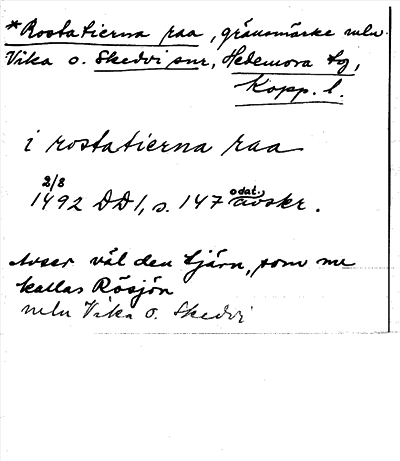 *Rostatierna raa, gränsmärke meln
Vika o. Skedvi snr, Hedemora tg,
Kopp. l.
i rostatierna raa
2/8
1492 DD 1, s. 147 odat. avskr.
Avser väl den tjärn, som nu
kallas Rösjön
meln Vika o. Skedvi